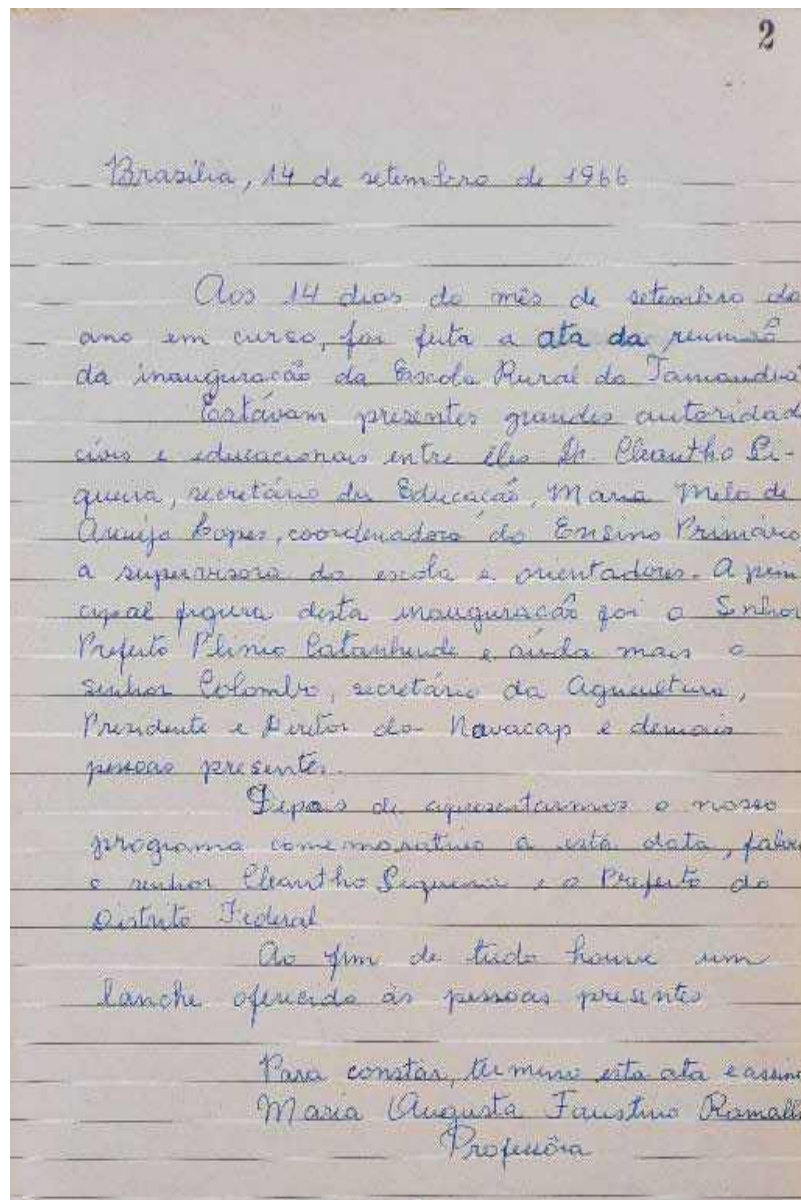 2
Brasília, 14 de setembro de 1966
Aos 14 dias do mês de setembro do
ano em curso, foi feita a ata da reunião
da inauguração da Escola Rural do Tamanduá
Estávam presentes grandes autoridad
civis e educacionais entre êles Dr. Cleantho Si-
queira, secretário da Educação, Maria Melo de
Araújo Lopes, coordenadora do Ensino Primário
a supervisora da escola e orientadores. A prin
cipal figura desta inauguração foi o Senhor
Prefeito Plinio Catanhende e ainda mais o
senhor Colombo, secretário da Agricultura,
Presidente e Diretor da Novacap e demais
pessoas presentes.
Depois de apresentarmos o nosso
programa comemorativo a esta data, falou
o senhor Cleantho Siqueira e o Prefeito do
Distrito Federal
Ao fim de tudo houve um
lanche oferecido às pessoas presentes
Para constar, termino esta ata e assino
Maria Augusta Faustino Ramalh
Professôra